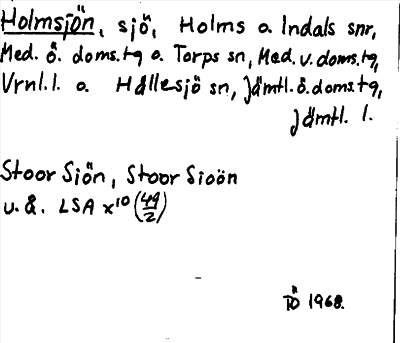 Holmsjön, sjö, Holms o. Indals snr,
Med. ö. doms.tg o. Torps sn, Med. v. doms.tg,
Vrnl. l. o. Hällesjö sn, Jämtl. ö. doms.tg,
Jämtl. l.
Stoor Siön, Stoor Sioön
u. å. LSA x¹⁰ (49/2)
1968.